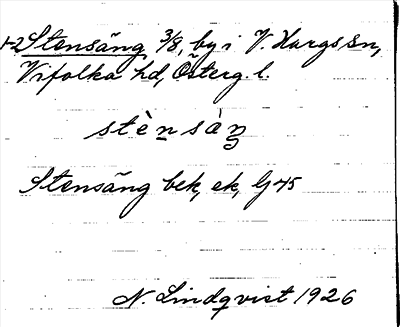 1-2 Stensäng 3/8, by i V. Hargs sn,
Vifolka hd, Österg. l.
stè̱nsàŋ
Stensäng bek, ek, G 45
N. Lindqvist 1926